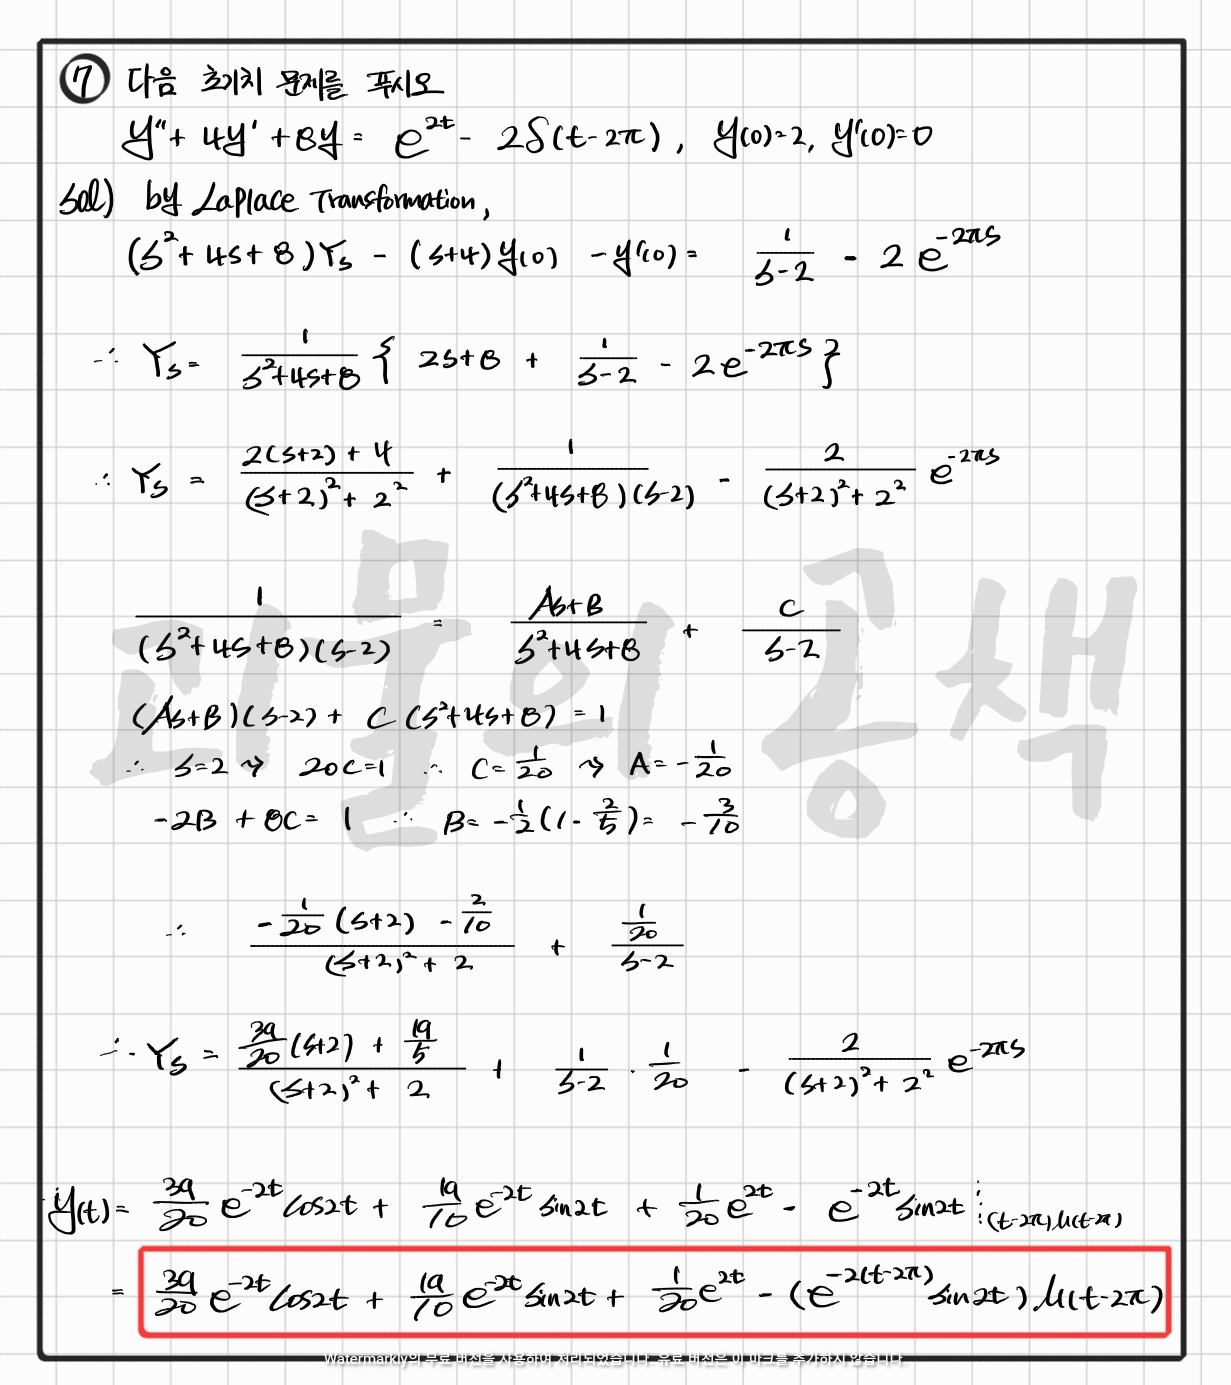 ⑦ 다음 초기치 문제를 푸시오
y''+ 4y' +8y = e^{2t} - 2δ(t-2π), y(0)=2, y'(0)=0
sol) by Laplace Transformation,
(s^2+4s+8)Ys - (s+4)y(0) - y'(0) = \frac{1}{s-2} - 2e^{-2πs}
∴ Ys = \frac{1}{s^2+4s+8} { 2s+8 + \frac{1}{s-2} - 2e^{-2πs} }
∴ Ys = \frac{2(s+2)+4}{(s+2)^2+2^2} + \frac{1}{(s^2+4s+8)(s-2)} - \frac{2}{(s+2)^2+2^2} e^{-2πs}
괴물의 공책
\frac{1}{(s^2+4s+8)(s-2)} = \frac{As+B}{s^2+4s+8} + \frac{C}{s-2}
(As+B)(s-2) + C(s^2+4s+8) = 1
∴ s=2 → 20C=1 ∴ C=\frac{1}{20} → A=-\frac{1}{20}
-2B + 8C = 1 ∴ B= -\frac{1}{2}(1-\frac{2}{5}) = -\frac{3}{10}
∴ \frac{-\frac{1}{20}(s+2) - \frac{2}{10}}{(s+2)^2+2} + \frac{\frac{1}{20}}{s-2}
∴ Ys = \frac{\frac{39}{20}(s+2) + \frac{19}{5}}{(s+2)^2+2} + \frac{1}{s-2} · \frac{1}{20} - \frac{2}{(s+2)^2+2^2} e^{-2πs}
y(t) = \frac{39}{20} e^{-2t} cos2t + \frac{19}{10} e^{-2t} sin2t + \frac{1}{20} e^{2t} - e^{-2t} sin2t ⋮ (t-2π), u(t-π)
= \frac{39}{20} e^{-2t} cos2t + \frac{19}{10} e^{-2t} sin2t + \frac{1}{20} e^{2t} - (e^{-2(t-2π)} sin2t) u(t-2π)
Watermarkly의 무료 버전을 사용하여 처리되었습니다. 유료 버전은 이 마크를 추가하지 않습니다.